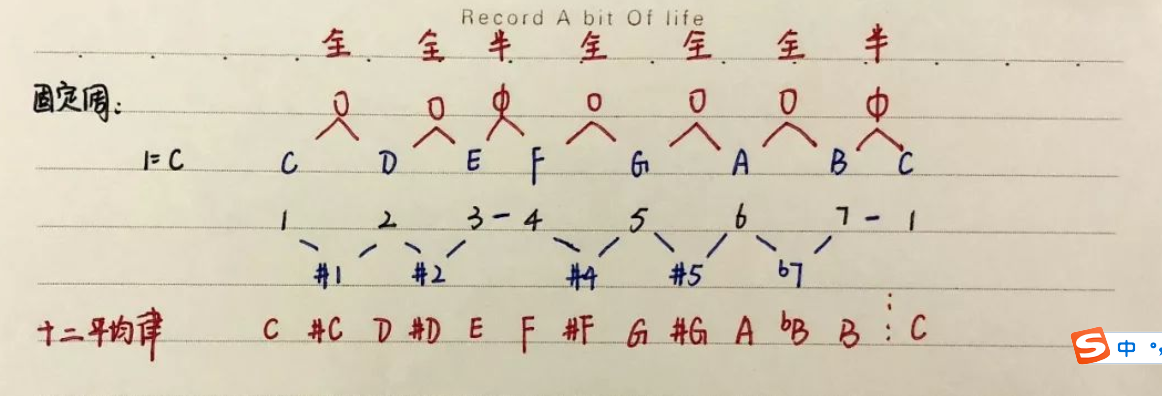 Record A bit Of life
全 全 半 全 全 全 半
固定周:
1=C C D E F G A B C
1 2 3 - 4 5 6 7 - 1
#1 #2 #4 #5 b7
十二平均律 C #C D #D E F #F G #G A bB B : C
中 °,